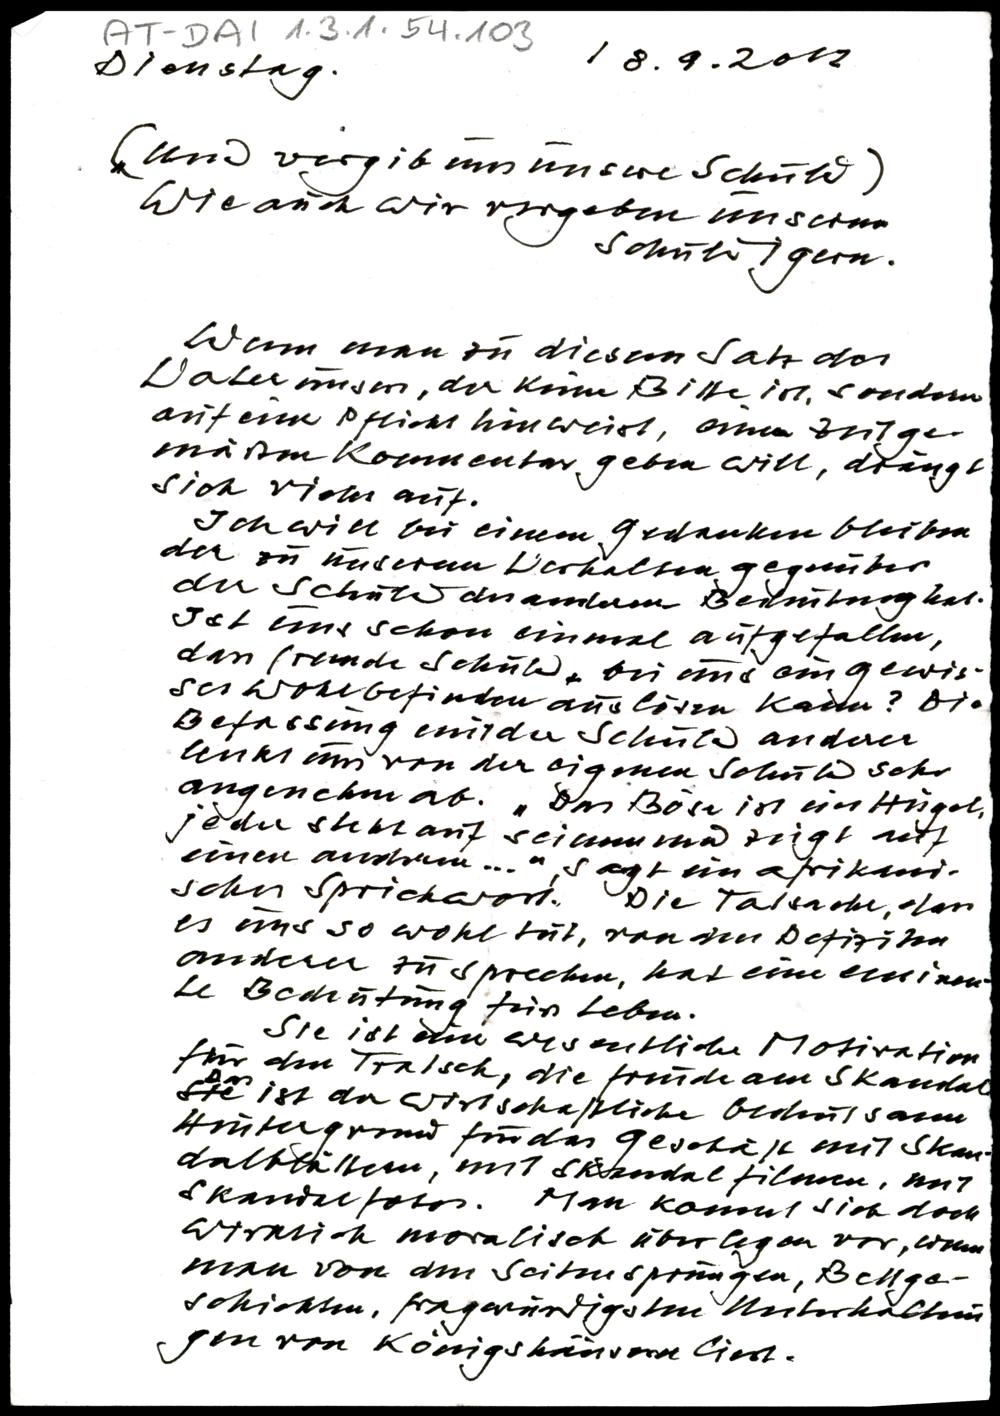 AT-DAI 1.3.1.54.103
Dienstag. 18.9.2012
(„Und vergib uns unsere Schuld)
Wie auch wir vergeben unseren
Schuldigern.
Wenn man zu diesem Satz des
Vater unsers, der keine Bitte ist, sondern
auf eine Pflicht hinweist, einen zeitge-
mäßen Kommentar geben will, drängt
sich vieles auf.
Ich will bei einem Gedanken bleiben
der zu unserem Verhalten gegenüber
der Schuld der anderen Bedeutung hat.
Ist uns schon einmal aufgefallen,
dass fremde Schuld, bei uns ein gewis-
ses Wohlbefinden auslösen kann? Die
Befassung mit der Schuld anderer
lenkt uns von der eigenen Schuld sehr
angenehm ab. „Das Böse ist ein Hügel,
jeder steht auf seinem und zeigt auf
einen anderen...", sagt ein afrikani-
sches Sprichwort. Die Tatsache, dass
es uns so wohl tut, von den Defiziten
anderer zu sprechen, hat eine eminen-
te Bedeutung fürs Leben.
Sie ist eine wesentliche Motivation
für den Tratsch, die Freude am Skandal
Das ist der wirtschaftliche bedeutsame
Hintergrund für das Geschäft mit Skan-
dalblättern, mit Skandalfilmen, mit
Skandalfotos. Man kommt sich doch
wirklich moralisch überlegen vor, wenn
man von den Seitensprüngen, Bettge-
schichten, fragwürdigsten Unterhaltun
gen von Königshäusern liest.